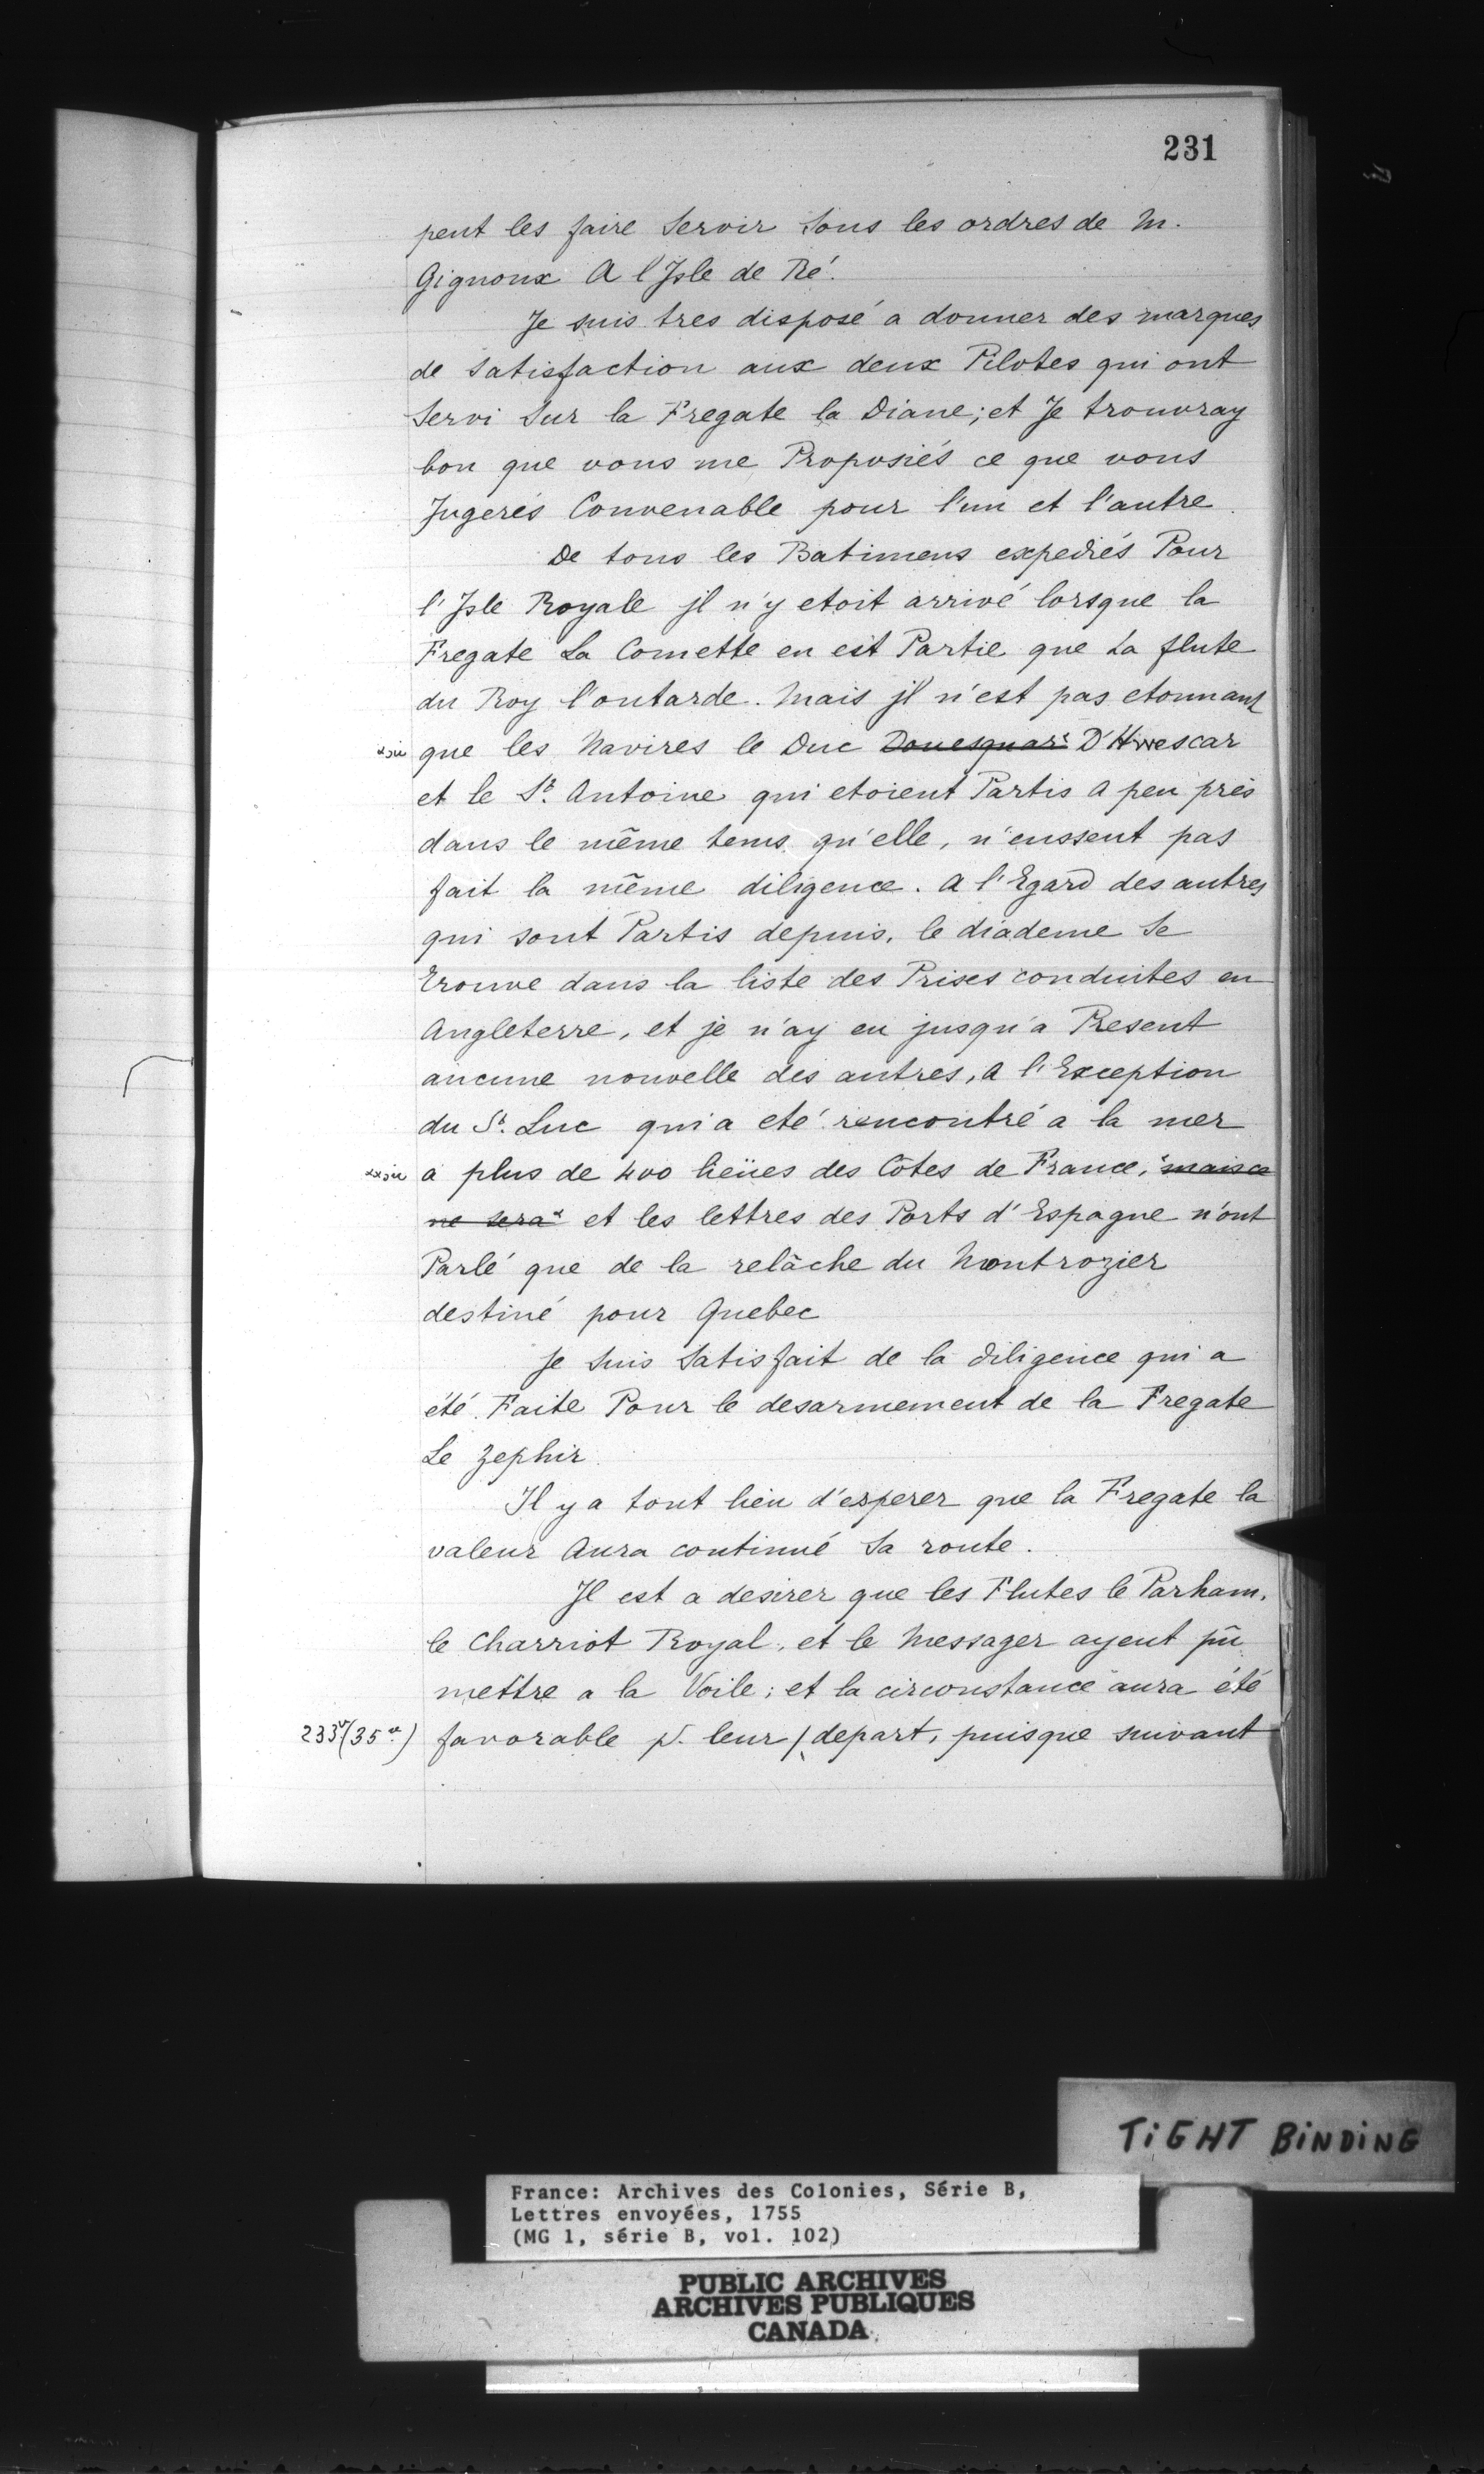 231
peut les faire Servir Sous les ordres de M.
Gignoux A l'Isle de Ré.
Je suis tres disposé a donner des marques
de satisfaction aux deux Pilotes qui ont
Servi Sur la Fregate la Diane; et Je trouvray
bon que vous me Proposiés ce que vous
Jugerés Convenable pour l'un et l'autre.
De tous les Batimens expediés Pour
l'Isle Royale jl n'y etoit arrivé lorsque la
Fregate La Comette en est Partie que La flute
du Roy l'outarde. Mais jl n'est pas etonnant
que les Navires le Duc Douesquar D'Hwescar
et le St. Antoine qui etoient Partis A peu près
dans le même tems qu'elle, n'eussent pas
fait la même diligence. A l'Egard des autres
qui sont Partis depuis, le diademe Se
trouve dans la liste des Prises conduites en
Angleterre, et je n'ay eu jusqu'a Present
aucune nouvelle des autres, A l'Exception
du St. Luc qui a eté rencontré a la mer
a plus de 400 lieües des Côtes de France, mais ce
ne sera et les lettres des Ports d'Espagne n'ont
Parlé que de la relâche du Montrozier
destiné pour Quebec
Je suis Satisfait de la diligence qui a
été Faite Pour le desarmement de la Fregate
Le Zephir.
Il y a tout lieu d'esperer que la Fregate la
valeur Aura continué Sa route.
Il est a desirer que les Flutes le Parham,
le Charriot Royal, et le Messager ayent pû
mettre a la Voile; et la circonstance aura été
233v (35v) favorable p. leur / depart, puisque suivant
TiGHT BiNDiNG
France: Archives des Colonies, Série B,
Lettres envoyées, 1755
(MG 1, série B, vol. 102)
PUBLIC ARCHIVES
ARCHIVES PUBLIQUES
CANADA